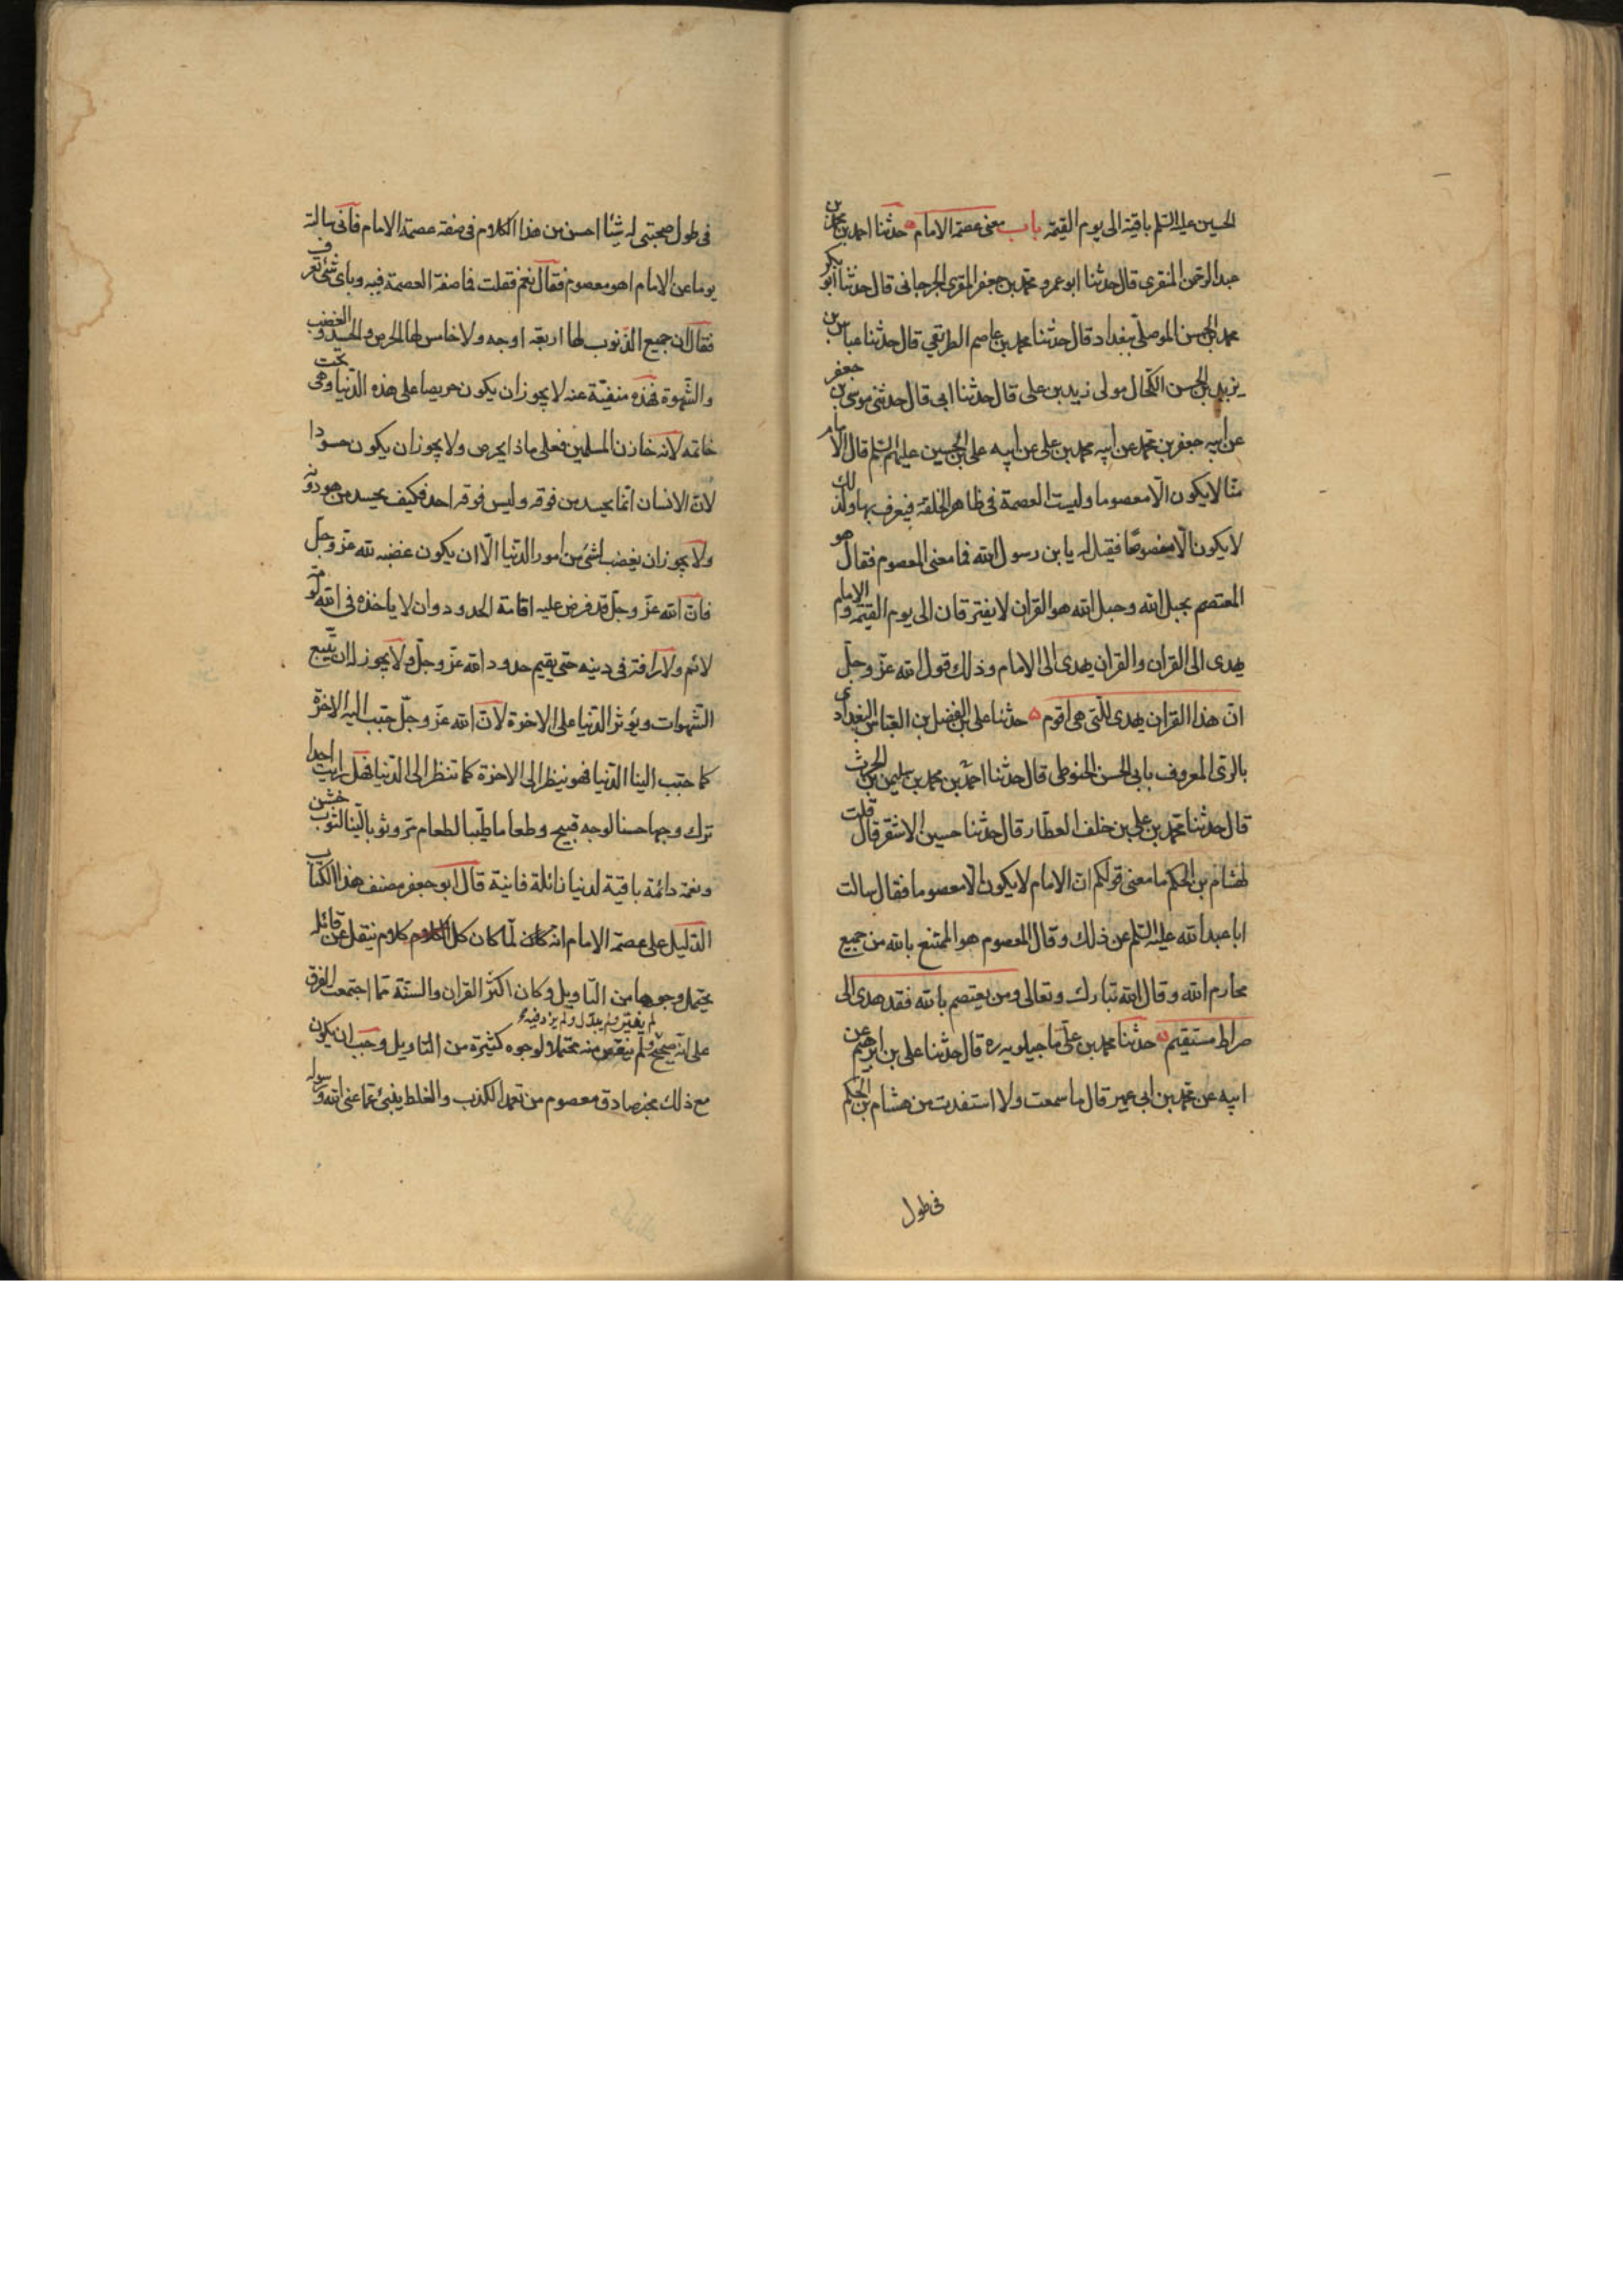 الحسين عليه السلم باقية الى يوم القيمة باب معنى عصمة الامام حدثنا احمد بن محمد بن
عبد الرحمن المنقرى قال حدثنا ابو عمرو محمد بن جعفر المقرى الجرجانى قال حدثنا ابو بكر
محمد بن الحسن الموصلى ببغداد قال حدثنا محمد بن عاصم الطريقي قال حدثنا عباس بن
يزيد بن الحسن الكحال مولى زيد بن على قال حدثنا ابى قال حدثنى موسى بن جعفر
عن ابيه جعفر بن محمد عن ابيه محمد بن على عن ابيه على بن الحسين عليهم السلم قال الامام
منّا لا يكون الّا معصوما وليست العصمة فى ظاهر الخلقة فيعرف بها ولذلك
لا يكون الّا منصوصًا فقيل له يا بن رسول الله فما معنى المعصوم فقال هو
المعتصم بحبل الله وحبل الله هو القران لا يفترقان الى يوم القيمة والامام
يهدى الى القران والقران يهدى الى الامام وذلك قول الله عزّ وجلّ
انّ هذا القران يهدى للّتى هى اقوم حدثنا على بن الفضل بن العباس البغدادى
بالرّى المعروف بابى الحسن الحنوطى قال حدثنا احمد بن محمد بن سليمن بن الحرث
قال حدثنا محمد بن على بن خلف العطّار قال حدثنا حسين الاشقر قال قلت
لهشام بن الحكم ما معنى قولكم انّ الامام لا يكون الّا معصوما فقال سالت
ابا عبد الله عليه السلم عن ذلك وقال المعصوم هو الممتنع بالله من جميع
محارم الله وقال الله تبارك وتعالى ومن يعتصم بالله فقد هدى الى
صراط مستقيم حدثنا محمد بن على ماجيلويه ره قال حدثنا على بن ابرهيم عن
ابيه عن محمد بن ابى عمير قال ما سمعت ولا استفدت من هشام بن الحكم
فى طول
فى طول صحبتى له شيئا احسن من هذا الكلام فى صفة عصمة الامام فانى سالته
يوما عن الامام اهو معصوم فقال نعم فقلت فما صفة العصمة فيه وباى شئ تعرف
فقال ان جميع الذّنوب لها اربعة اوجه ولا خامس لها الحرص والحسد والغضب
والشّهوة فهذه منفيّة عنه لا يجوز ان يكون حريصا على هذه الدّنيا وهى تحت
خاتمه لانه خازن المسلمين فعلى ماذا يحرص ولا يجوز ان يكون حسودا
لانّ الانسان انّما يحسد من فوقه وليس فوقه احد فكيف يحسد من هو دونه
ولا يجوز ان يغضب لشئ من امور الدّنيا الّا ان يكون غضبه لله عزّ وجلّ
فانّ الله عزّ وجلّ قد فرض عليه اقامة الحدود وان لا ياخذه فى الله لومة
لائم ولا رافة فى دينه حتى يقيم حدود الله عزّ وجلّ ولا يجوز له ان يتّبع
الشّهوات ويؤثر الدّنيا على الاخرة لانّ الله عزّ وجلّ حبّب اليه الاخرة
كما حبّب الينا الدّنيا فهو ينظر الى الاخرة كما تنظر الى الدّنيا فهل رايت احدا
ترك وجها حسنا لوجه قبيح وطعاما طيّبا لطعام مرّ وثوبا ليّنا لثوب خشن
ونعمة دائمة باقية لدنيا زائلة فانية قال ابو جعفر مصنف هذا الكتاب
الدّليل على عصمة الامام انه كان لمّا كان كل كلام ينقل عن قائله
يحتمل وجوها من التّاويل وكان اكثر القران والسنّة ممّا اجتمعت الفرق
لم يغيّر ولم يبدّل ولم يزد فيه
على انّه صحيح ولم ينقص منه محتملا لوجوه كثيرة من التّاويل وجب ان يكون
مع ذلك مخبر صادق معصوم من تعمّد الكذب والغلط ينبئ عمّا عنى الله ورسوله